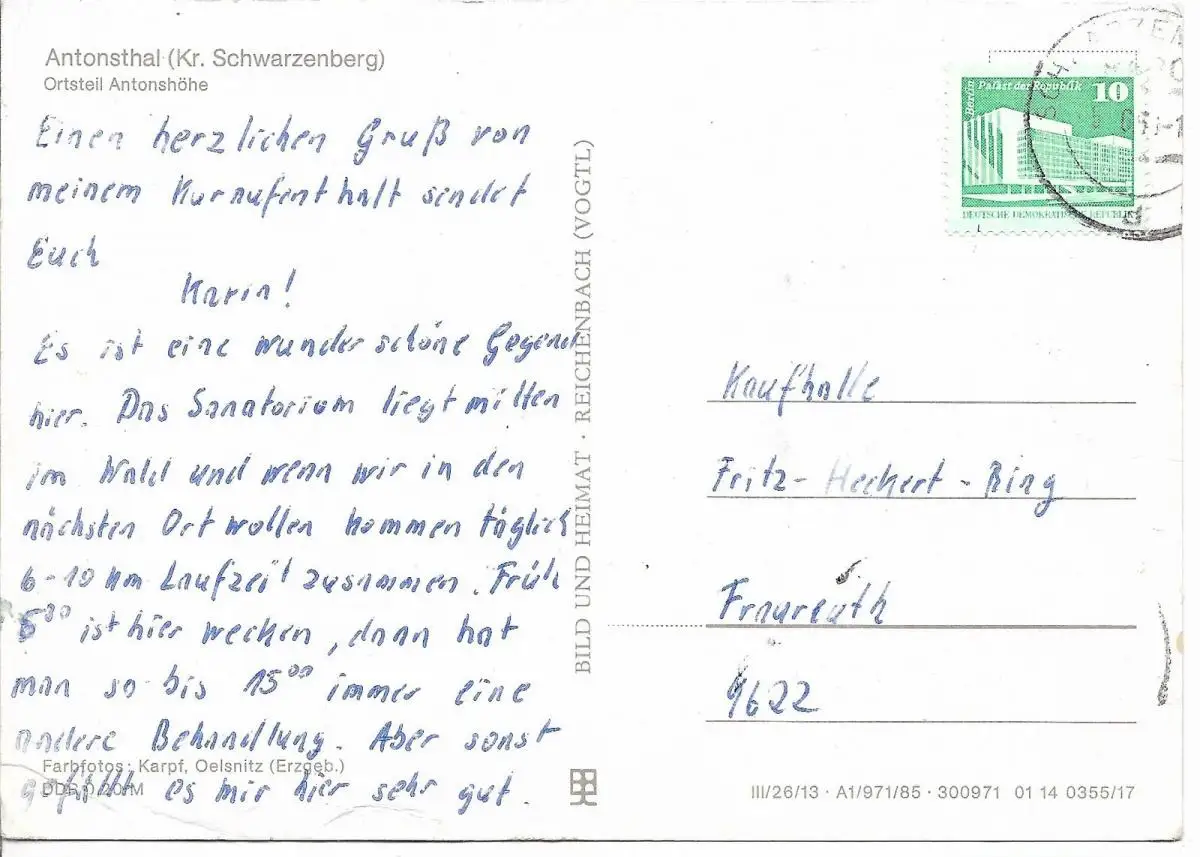 Antonsthal (Kr. Schwarzenberg)
Ortsteil Antonshöhe
Einen herzlichen Gruß von
meinem Kuraufenthalt sendet
Euch
Karin!
Es ist eine wunderschöne Gegend
hier. Das Sanatorium liegt mitten
im Wald und wenn wir in den
nächsten Ort wollen kommen täglich
6-10 km Laufzeit zusammen. Früh
5⁰⁰ ist hier wecken, dann hat
man so bis 15⁰⁰ immer eine
andere Behandlung. Aber sonst
gefällt es mir hier sehr gut.
Farbfotos: Karpf, Oelsnitz (Erzgeb.)
DDR 0,20 M
BILD UND HEIMAT · REICHENBACH (VOGTL)
Berlin Palast der Republik 10
DEUTSCHE DEMOKRATISCHE REPUBLIK
Kaufhalle
Fritz-Heckert-Ring
Fraureuth
9622
III/26/13 · A1/971/85 · 300971 01 14 0355/17